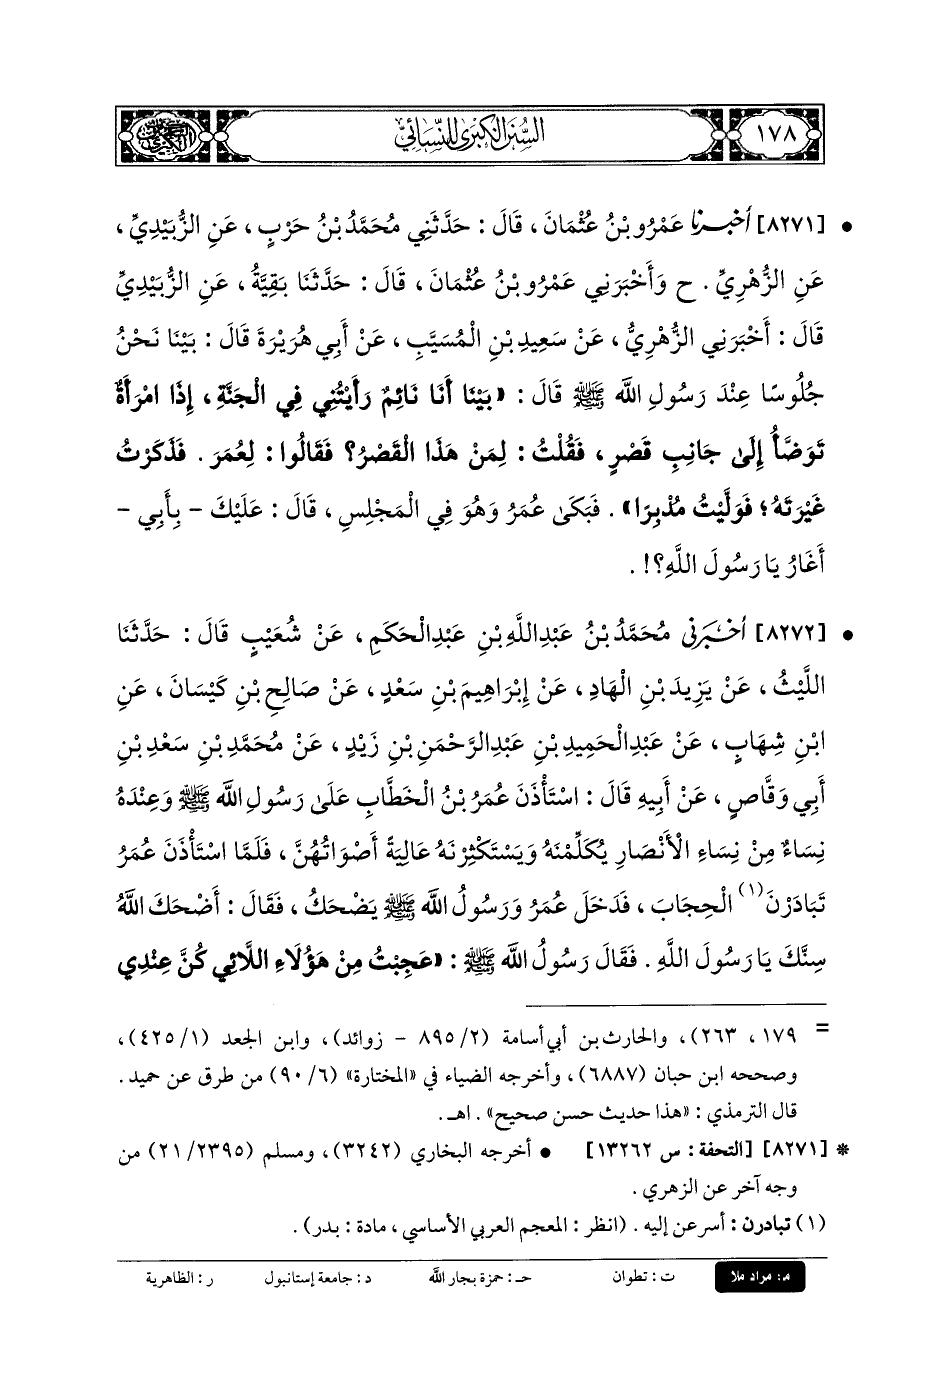 ١٧٨
السنن الكبرى للنسائي
• [٨٢٧١] أَخْبَرَنَا عَمْرُو بْنُ عُثْمَانَ، قَالَ: حَدَّثَنِي مُحَمَّدُ بْنُ حَرْبٍ، عَنِ الزُّبَيْدِيِّ،
عَنِ الزُّهْرِيِّ. ح وَأَخْبَرَنِي عَمْرُو بْنُ عُثْمَانَ، قَالَ: حَدَّثَنَا بَقِيَّةُ، عَنِ الزُّبَيْدِيِّ
قَالَ: أَخْبَرَنِي الزُّهْرِيُّ، عَنْ سَعِيدِ بْنِ الْمُسَيَّبِ، عَنْ أَبِي هُرَيْرَةَ قَالَ: بَيْنَا نَحْنُ
جُلُوسًا عِنْدَ رَسُولِ اللهِ ﷺ قَالَ: «بَيْنَا أَنَا نَائِمٌ رَأَيْتُنِي فِي الْجَنَّةِ، إِذَا امْرَأَةٌ
تَوَضَّأُ إِلَىٰ جَانِبِ قَصْرٍ، فَقُلْتُ: لِمَنْ هَذَا الْقَصْرُ؟ فَقَالُوا: لِعُمَرَ. فَذَكَرْتُ
غَيْرَتَهُ؛ فَوَلَّيْتُ مُدْبِرًا». فَبَكَىٰ عُمَرُ وَهُوَ فِي الْمَجْلِسِ، قَالَ: عَلَيْكَ - بِأَبِي -
أَغَارُ يَا رَسُولَ اللَّهِ؟!.
• [٨٢٧٢] أَخْبَرَنِي مُحَمَّدُ بْنُ عَبْدِ اللَّهِ بْنِ عَبْدِ الْحَكَمِ، عَنْ شُعَيْبٍ قَالَ: حَدَّثَنَا
اللَّيْثُ، عَنْ يَزِيدَ بْنِ الْهَادِ، عَنْ إِبْرَاهِيمَ بْنِ سَعْدٍ، عَنْ صَالِحِ بْنِ كَيْسَانَ، عَنِ
ابْنِ شِهَابٍ، عَنْ عَبْدِ الْحَمِيدِ بْنِ عَبْدِ الرَّحْمَنِ بْنِ زَيْدٍ، عَنْ مُحَمَّدِ بْنِ سَعْدِ بْنِ
أَبِي وَقَّاصٍ، عَنْ أَبِيهِ قَالَ: اسْتَأْذَنَ عُمَرُ بْنُ الْخَطَّابِ عَلَىٰ رَسُولِ اللهِ ﷺ وَعِنْدَهُ
نِسَاءٌ مِنْ نِسَاءِ الْأَنْصَارِ يُكَلِّمْنَهُ وَيَسْتَكْثِرْنَهُ عَالِيَةً أَصْوَاتُهُنَّ، فَلَمَّا اسْتَأْذَنَ عُمَرُ
تَبَادَرْنَ(١) الْحِجَابَ، فَدَخَلَ عُمَرُ وَرَسُولُ اللهِ ﷺ يَضْحَكُ، فَقَالَ: أَضْحَكَ اللهُ
سِنَّكَ يَا رَسُولَ اللهِ. فَقَالَ رَسُولُ اللهِ ﷺ: «عَجِبْتُ مِنْ هَؤُلَاءِ اللَّائِي كُنَّ عِنْدِي
= ١٧٩، ٢٦٣)، والحارث بن أبي أسامة (٨٩٥/٢ - زوائد)، وابن الجعد (٤٢٥/١)،
وصححه ابن حبان (٦٨٨٧)، وأخرجه الضياء في «المختارة» (٩٠/٦) من طرق عن حميد.
قال الترمذي: «هذا حديث حسن صحيح». اهـ.
* [٨٢٧١] [التحفة: س ١٣٢٦٢] • أخرجه البخاري (٣٢٤٢)، ومسلم (٢١/٢٣٩٥) من
وجه آخر عن الزهري.
(١) تبادرن: أسرعن إليه. (انظر: المعجم العربي الأساسي، مادة: بدر).
م: مراد ملا ت: تطوان حـ: حمزة بجار الله د: جامعة إستانبول ر: الظاهرية